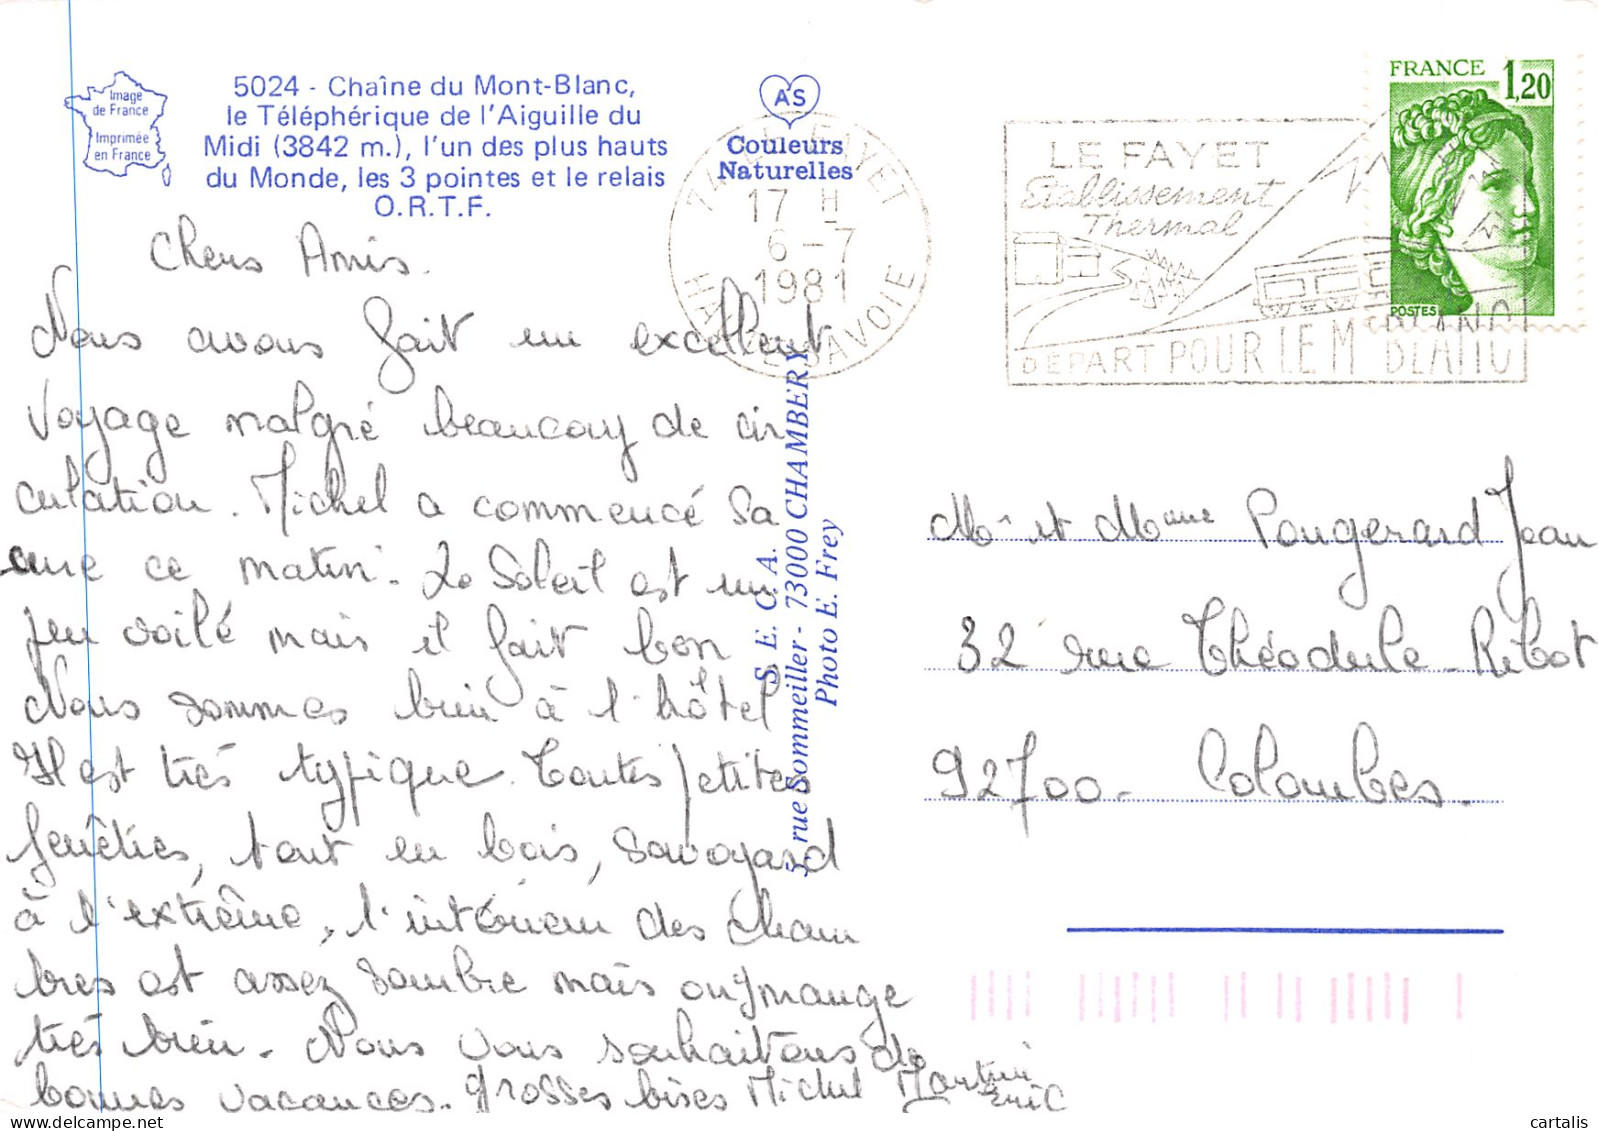 Image
de France
Imprimée
en France
5024 - Chaîne du Mont-Blanc,
le Téléphérique de l'Aiguille du
Midi (3842 m.), l'un des plus hauts
du Monde, les 3 pointes et le relais
O.R.T.F.
AS
Couleurs
Naturelles
74 LE FAYET
17 H
6-7
1981
HAUTE SAVOIE
LE FAYET
Etablissement
Thermal
DÉPART POUR LE MT BLANC
FRANCE 1,20
POSTES
Chers Amis.
Nous avons fait un excellent
Voyage malgré beaucoup de cir
culation. Michel a commencé sa
cure ce matin. Le Soleil est un
peu voilé mais il fait bon
Nous sommes bien à l'hôtel
Il est très typique. Toutes petites
fenêtres, tout en bois, Savoyard
à l'extrême, l'intérieur des cham
bres est assez sombre mais on y mange
très bien. Nous vous souhaitons de
bonnes vacances. grosses bises Michel Martine
Eric
S. E. C. A.
5, rue Sommeiller - 73000 CHAMBERY
Photo E. Frey
Mr et Mme Pougerard Jean
32 rue Théodule Ribot
92700 - Colombes.
cartalis